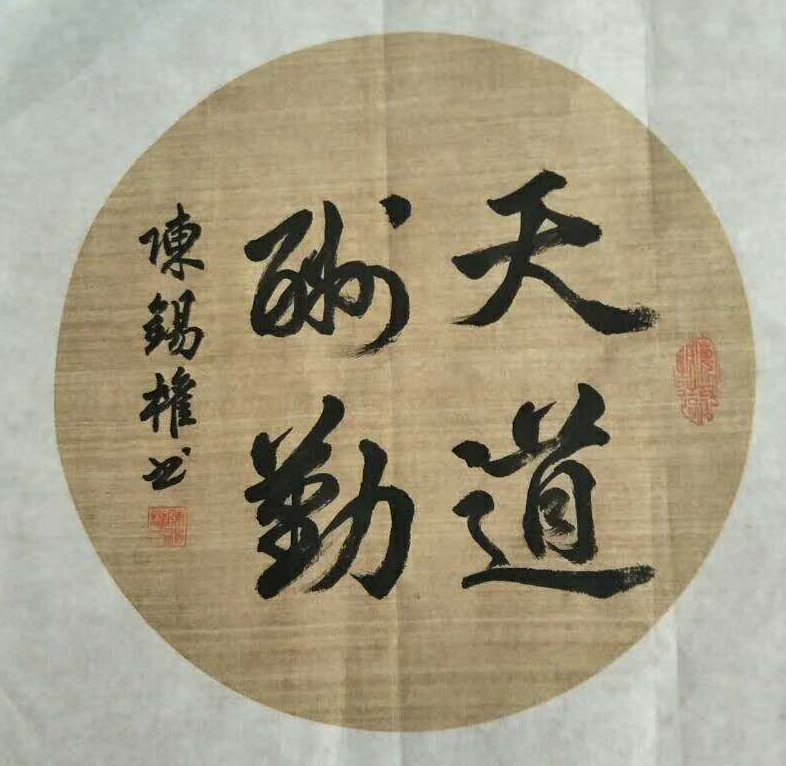 天道
酬勤
陳錫權书